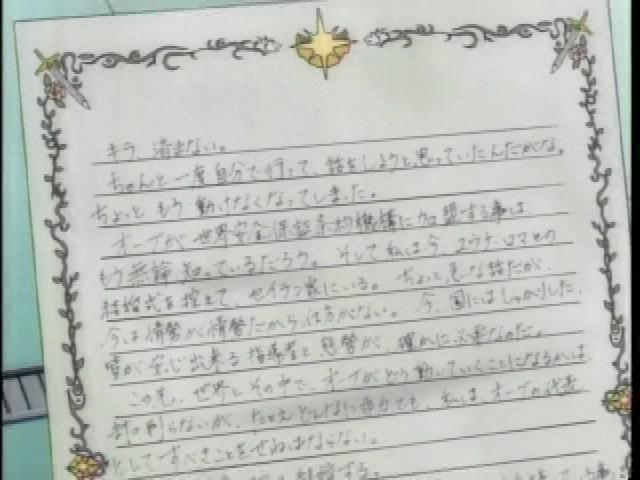 キラ、済まない。
ちゃんと一度自分で行って、話をしようと思っていたんだがな。
ちょっともう動けなくなってしまった。
オーブが世界安全保証条約機構に加盟する事は、
もう無論知っているだろう。そして私は今、ユウナ・ロマとの
結婚式を控えて、セイラン家にいる。ちょっと急な話だが、
今は情勢が情勢だから、仕方がない。今、国にはしっかりした、
皆が安心出来る指導者と態勢が、確かに必要なのだ。
この先、世界とその中で、オーブがどう動いていくことになるかは、
まだ判らないが、たとえどんなに非力でも、私は、オーブの代表
としてすべきことをせねばならない。
結婚する。